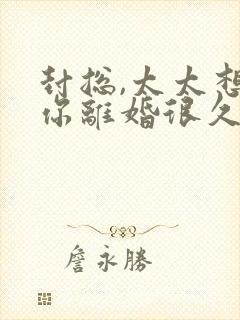 封总,太太想
你離婚很久
詹永勝